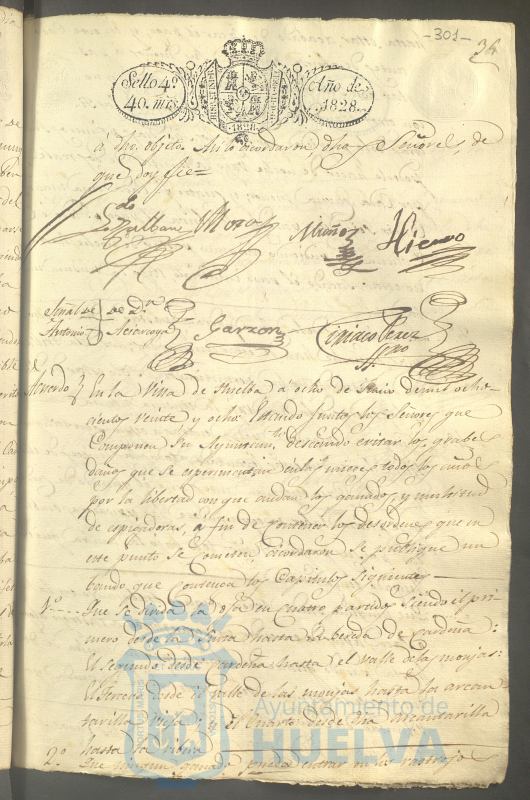 -301-
34
Sello 4º
40. mrs.
Año de
1828.
1828
á dho. objeto. Asi lo acordaron dhos Señores, de
que doy fie=
Mora Muñoz Hierro
Señal de de Dn.
Antonio Garzon Ciriaco Perez
Ssno
Acuerdo En la Villa de Huelba á ocho de Junio de mil ocho-
cientos veinte y ocho Estando juntos los Señores que
Componen Su Ayuntamto. deseando evitar los grabes
daños que se esperimentan en las mieses todos los años
por la libertad con que andan los ganados, y multitud
de espigadoras, á fin de contener los desordenes que en
este punto se cometen acordaron se publique un
bando que contenga los Capitulos Siguientes
1º Que se divida la Osa en cuatro partidos siendo el pri-
mero desde la hasta la bereda de Cardeña:
El Segundo desde Cardeña hasta el Valle de las monjas:
El tercero desde el Valle de las monjas hasta la arcan-
tarilla vieja; y el Cuarto desde dha arcantarilla
hasta la Ribera
2º Que ningun ganado pueda entrar en los rastrojos
Ayuntamiento de
HUELVA